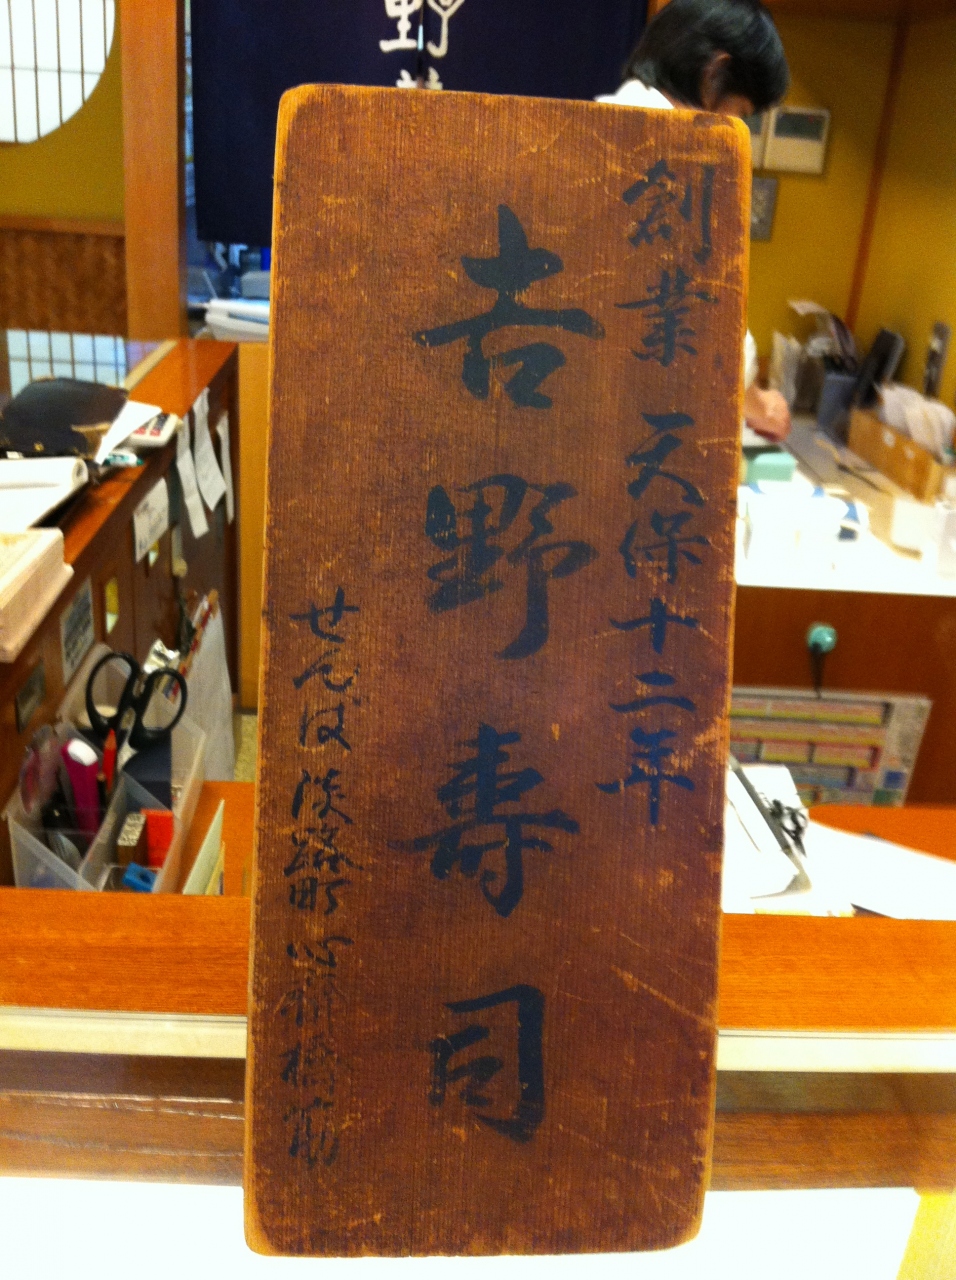 創業 天保十二年
吉野寿司
せんば 淡路町 心斎橋筋
野